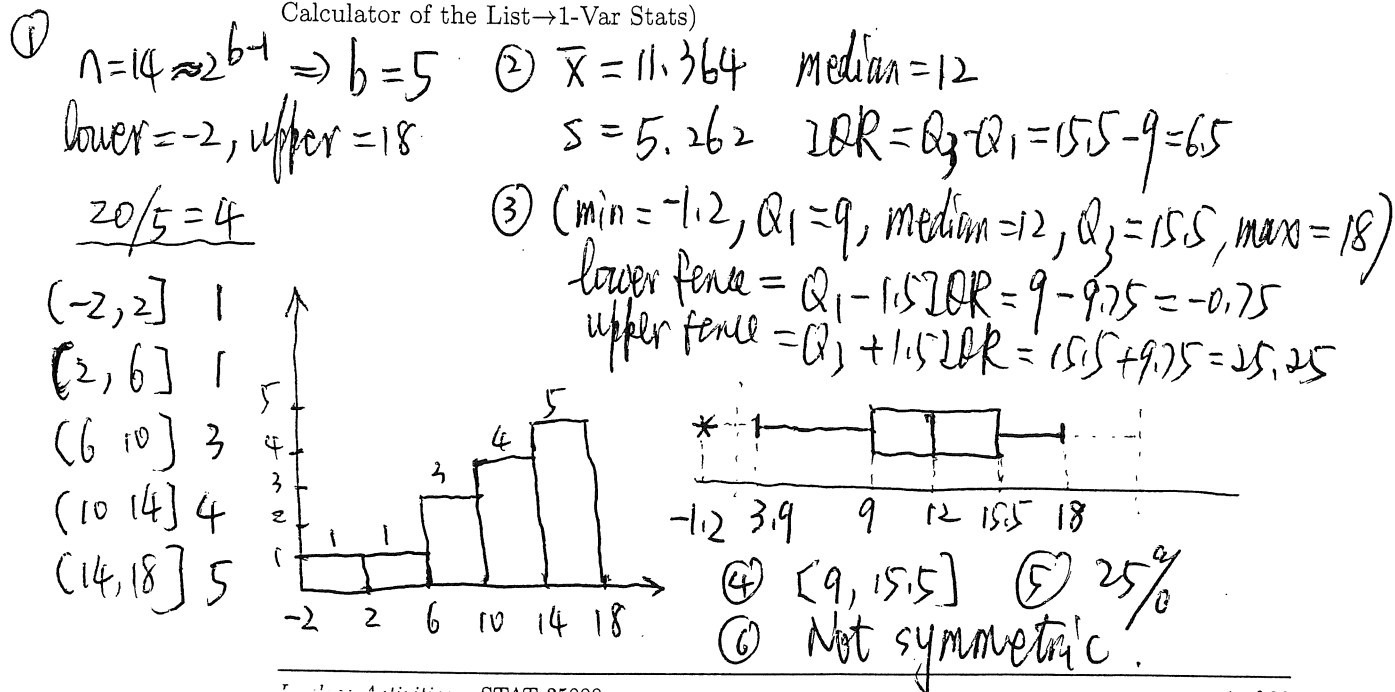 Calculator of the List→1-Var Stats)
① n=14≈2^{b-1} ⇒ b=5
lower=-2, upper=18
20/5=4
(-2,2] 1
(2,6] 1
(6 10] 3
(10 14] 4
(14,18] 5
5
4
3
2
1
1 1 3 4 5
-2 2 6 10 14 18
② x̄=11.364 median=12
s=5.262 IQR=Q3-Q1=15.5-9=6.5
③ (min=-1.2, Q1=9, median=12, Q3=15.5, max=18)
lower fence = Q1-1.5IQR=9-9.75=-0.75
upper fence = Q3+1.5IQR=15.5+9.75=25.25
-1.2 3.9 9 12 15.5 18
④ [9, 15.5] ⑤ 25%
⑥ Not symmetric.